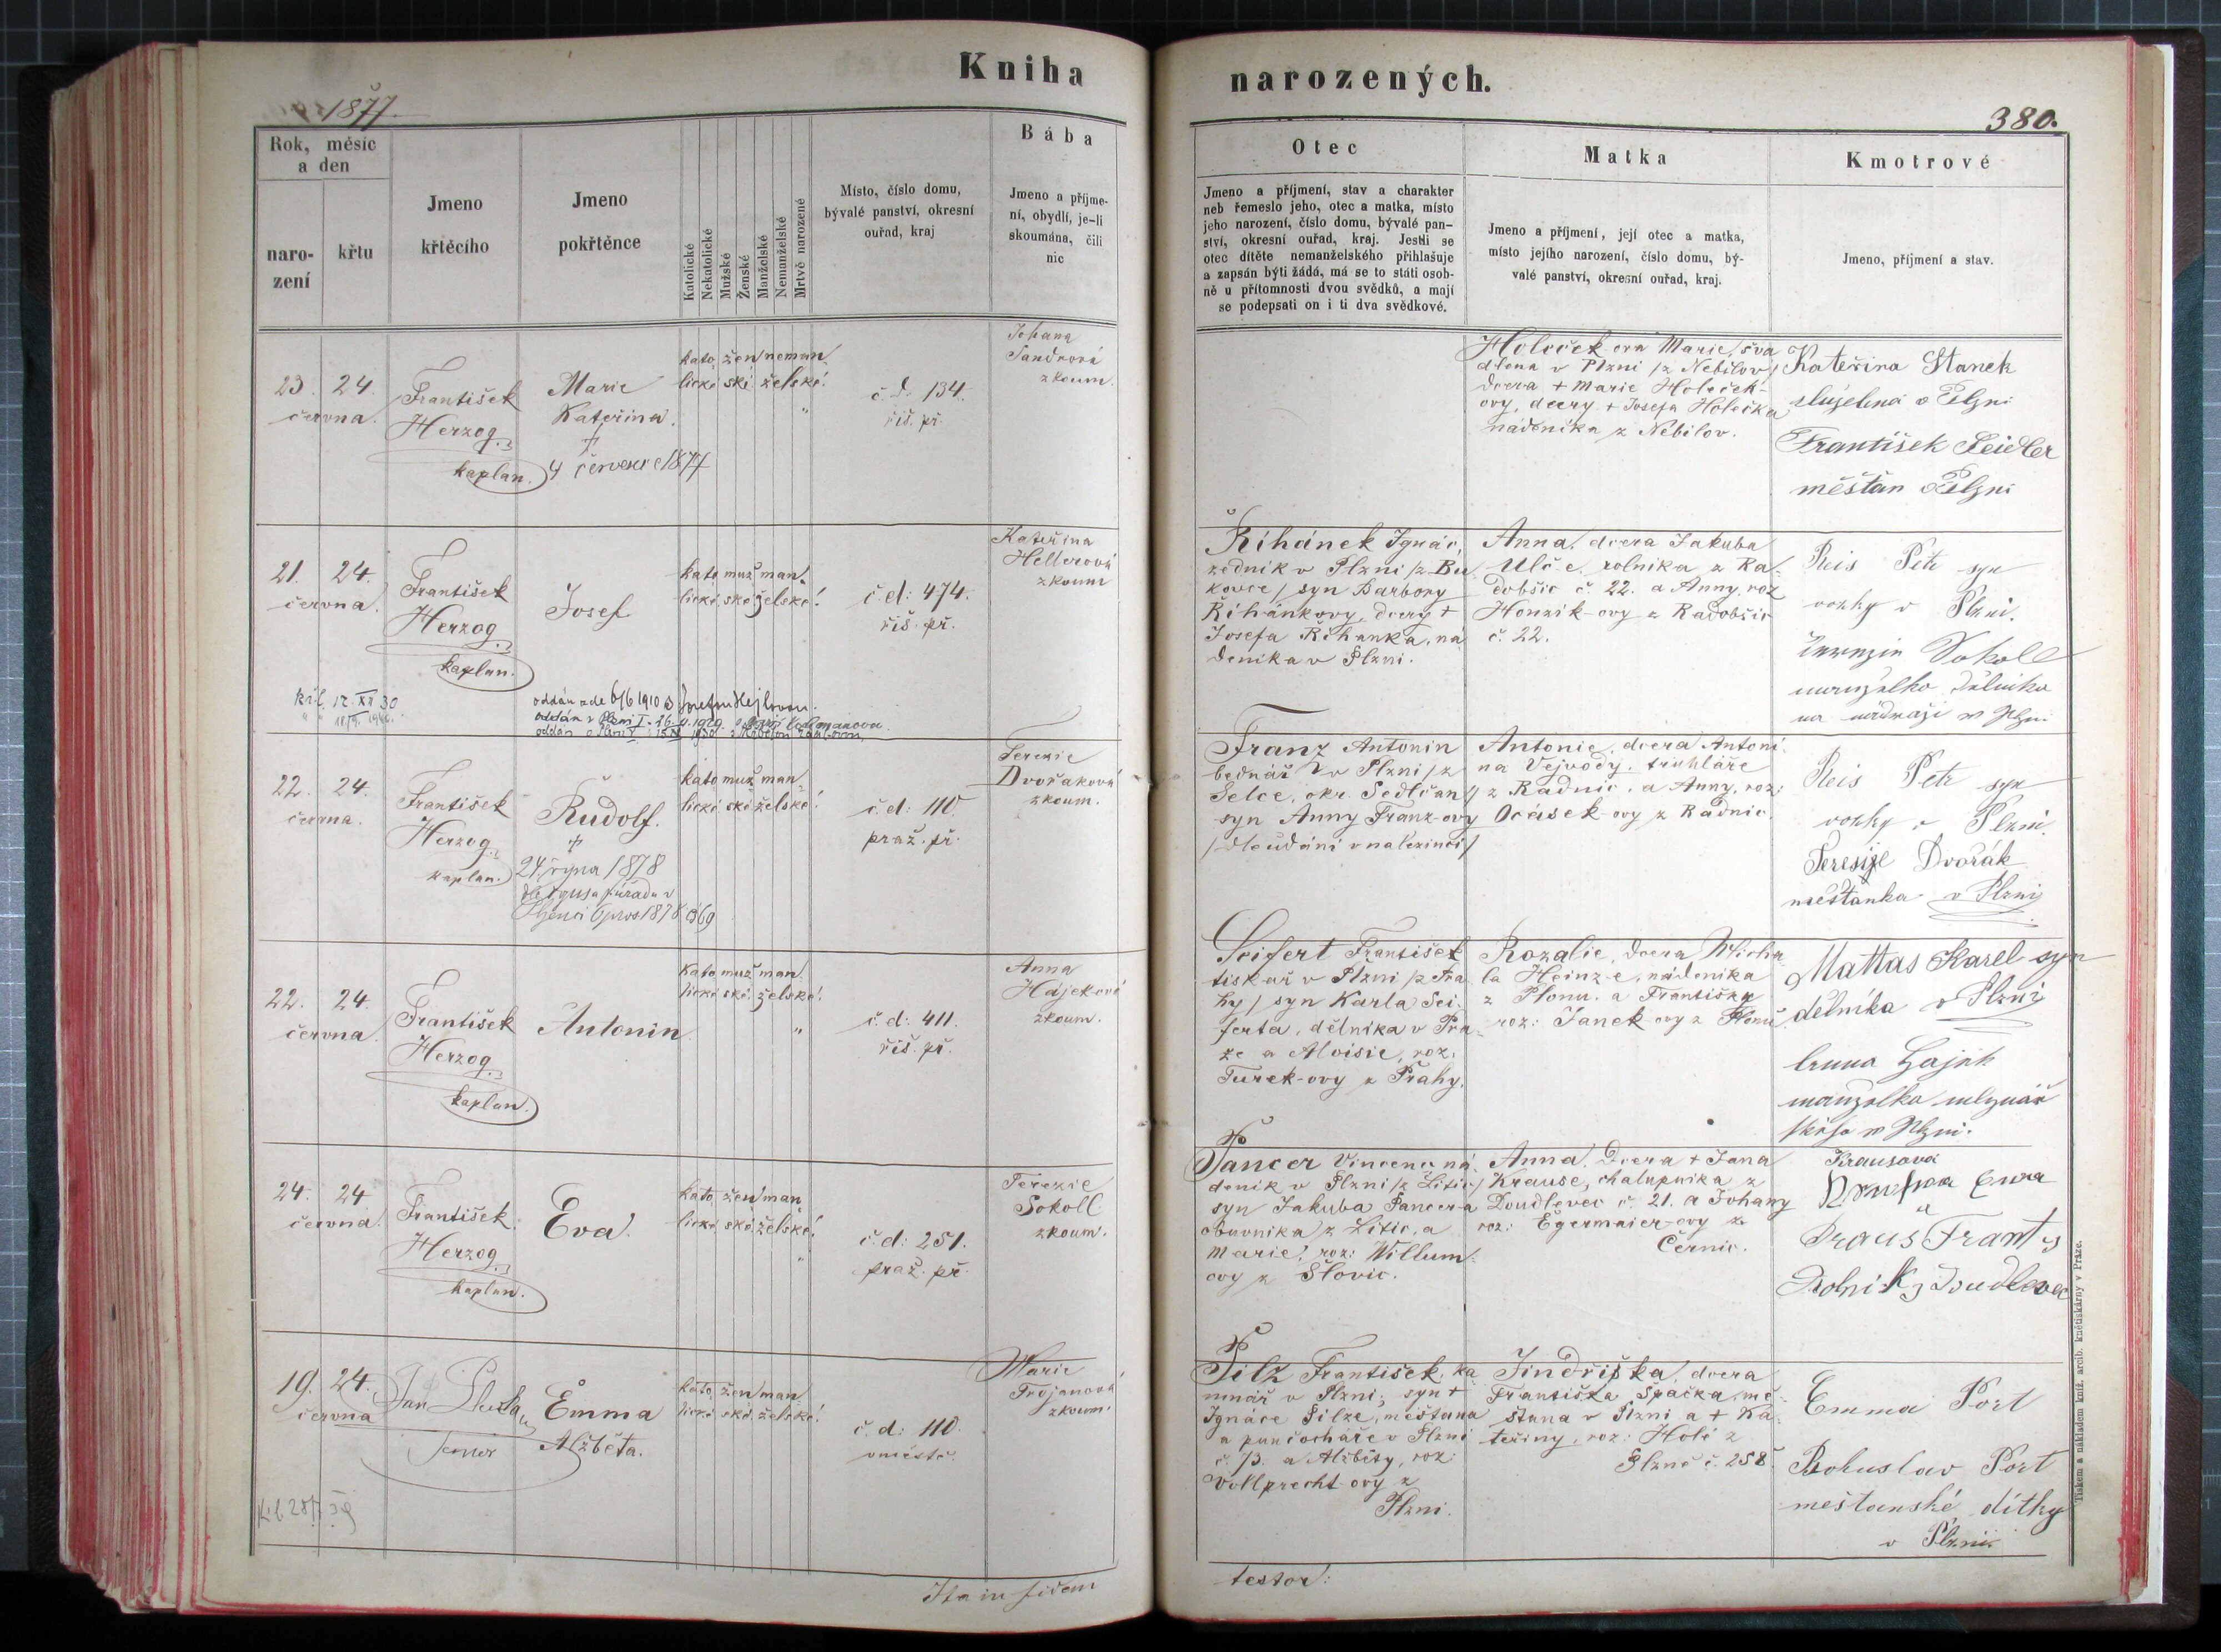 Kniha
narozených.
1877.
380.
Rok, měsíc
a den
naro-
zení
křtu
Jmeno
křtěcího
Jmeno
pokřtěnce
Katolické
Nekatolické
Mužské
Ženské
Manželské
Nemanželské
Mrtvě narozené
Místo, číslo domu,
bývalé panství, okresní
ouřad, kraj
Bába
Jmeno a příjme-
ní, obydlí, je-li
skoumána, čili
nic
Otec
Jmeno a příjmení, stav a charakter
neb řemeslo jeho, otec a matka, místo
jeho narození, číslo domu, bývalé pan-
ství, okresní ouřad, kraj. Jestli se
otec dítěte nemanželského přihlašuje
a zapsán býti žádá, má se to státi osob-
ně u přítomnosti dvou svědků, a mají
se podepsati on i ti dva svědkové.
Matka
Jmeno a příjmení, její otec a matka,
místo jejího narození, číslo domu, bý-
valé panství, okresní ouřad, kraj.
Kmotrové
Jmeno, příjmení a stav.
23. 24.
června.
František
Herzog
kaplan.
Marie
Kateřina.
†
4 července 1877
kato žen neman
lické ské želské.
č. d. 134.
řiš. př.
Johana
Sandrová
zkoum.
Holeček ova Marie, šva
dlena v Plzni /z Nebilov/
dcera + Marie Holeček-
ovy, dcery + Josefa Holečka
nádeníka z Nebilov.
Kateřina Stanek
služebná v Plzni
František Seidler
měšťan v Plzni
21. 24.
června.
František
Herzog
kaplan.
Josef
kato muž man
lické ské želské.
č. d: 474.
řiš. př.
Kateřina
Hellerová
zkoum
oddán zde 6/6 1910 s
Říhánek Ignác,
zedník v Plzni /z Bu
kovce/ syn Barbory
Říhánkovy, dcery +
Josefa Říhánka, ná
deníka v Plzni.
Anna, dcera Jakuba
Ulč e, rolníka z Ra
dobšic č. 22. a Anny, roz
Honzik-ovy z Radobšic
č. 22.
Reis Petr syn
vozky v Plzni.
Sokoll
manželka dělníka
na nádraží v Plzni
22. 24.
června.
František
Herzog
kaplan.
Rudolf.
†
24. října 1878
kato muž man
lické ské želské.
č. d: 110.
praž. př.
Terezie
Dvořaková
zkoum.
Franz Antonin
bednář v Plzni /z
Selce, okr. Sedlčan/
syn Anny Franz-ovy
Antonie, dcera Antoni
na Vejvody, truhláře
z Radnic, a Anny, roz:
Ocásek-ovy z Radnic.
Reis Petr syn
vozky v Plzni.
Teresije Dvořák
měšťanka v Plzni
22. 24.
června.
František
Herzog
kaplan.
Antonin
kato muž man
lické ské. želské.
č. d: 411.
řiš. př.
Anna
Hájeková
zkoum.
Seifert František
tiskař v Plzni /z Pra
hy/ syn Karla Sei
ferta, dělníka v Pra
ze a Aloisie, roz:
Turek-ovy z Prahy.
Rozalie, dcera Micha
la Heinz-e, nádeníka
z Plonu. a Františky
roz: Janek ovy z Plonu
Mattas Karel syn
dělníka v Plzni
Anna Hajek
manželka mlynář
v Plzni.
24. 24
června.
František
Herzog
kaplan.
Eva.
kato žen man
lické ské želské.
č. d: 251.
praž. př.
Terezie
Sokoll
zkoum.
Pancer Vincenc ná
deník v Plzni /z Litic/
syn Jakuba Pancera
obuvníka z Litic, a
Marie, roz: Willum-
ovy z Šlovic.
Anna, Dcera + Jana
Krause, chalupníka z
Doudlevec č. 21. a Johany
roz: Egermaier-ovy z
Černic.
Krausová
Eva
Kraus Frant
Rolnik z Doudlevec
19. 24.
června
Emma
Alžběta.
kato žen man
lické ské. želské.
č. d: 110.
v městě.
Marie
Trojanová
zkoum.
Pilz František, ka
menář v Plzni; syn +
Ignáce Pilze, měšťana
a punčocháře v Plzni
č. 13. a Alžběty, roz:
Vollprecht-ovy z
Plzni.
Jindřiška, dcera
Františka Špačka, mě
šťana v Plzni a + Ka
teřiny, roz: Holé z
Plzně č. 258.
Emma Port
Bohuslav Port
mešťanské dítky
v Plzni
Ita in fidem
testor:
Tiskem a nákladem kníž. arcib. knětiskárny v Praze.